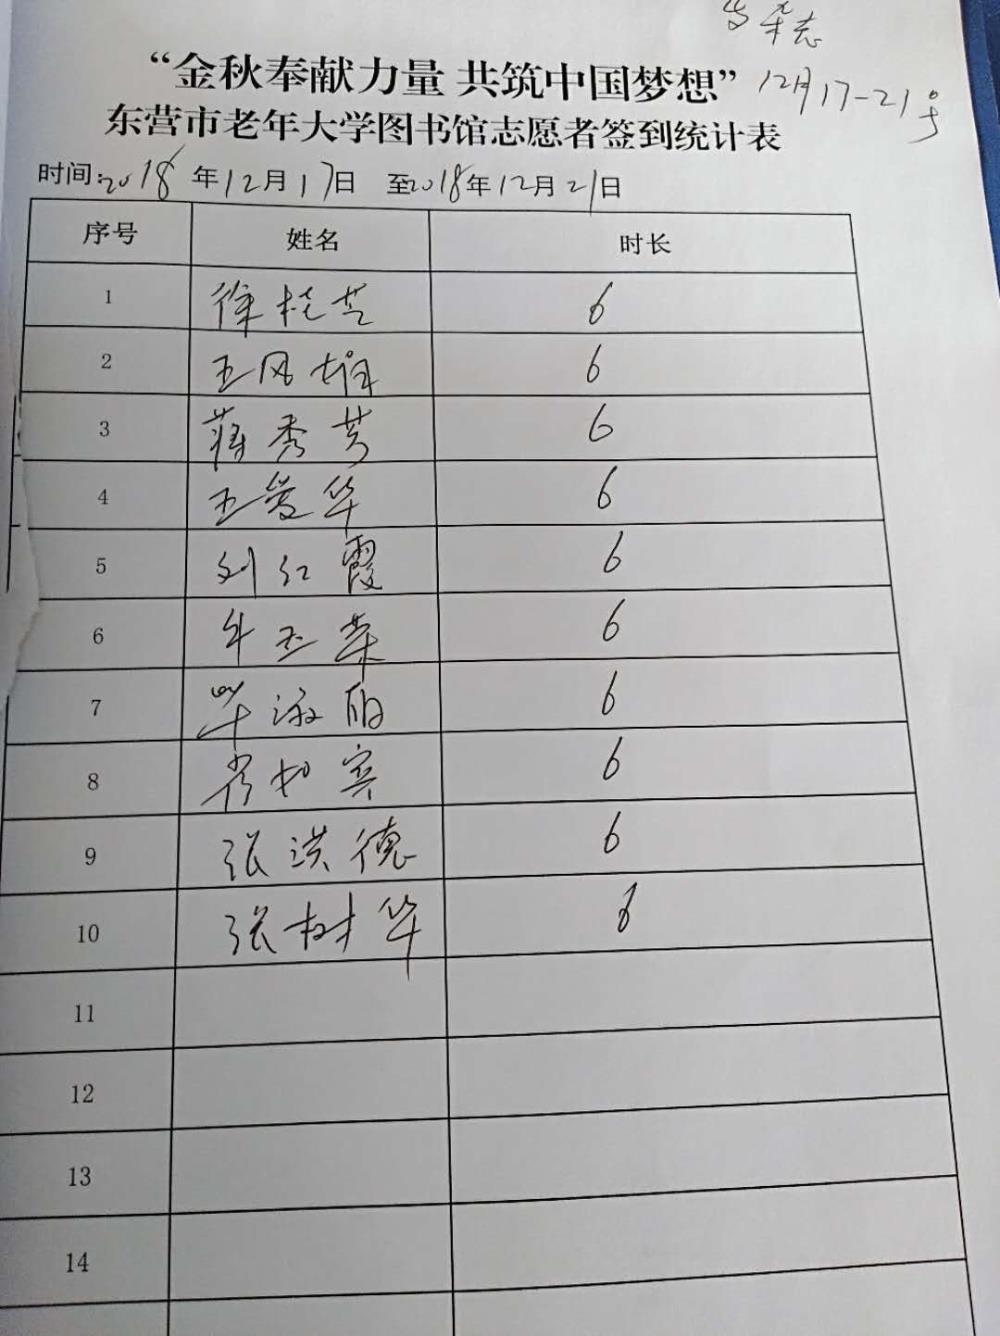 “金秋奉献力量 共筑中国梦想”
12月17-21号
东营市老年大学图书馆志愿者签到统计表
时间:2018年12月17日 至2018年12月21日
序号 姓名 时长
1 徐桂芝 6
2 王风 6
3 蒋秀芳 6
4 王爱华 6
5 刘红霞 6
6 牛玉荣 6
7 毕淑丽 6
8 6
9 张洪德 6
10 张树华 6
11
12
13
14